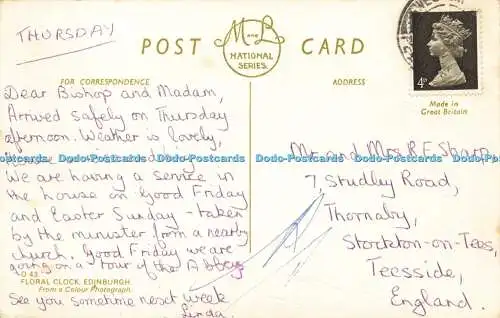 THURSDAY
POST CARD
M and L
NATIONAL
SERIES.
FOR CORRESPONDENCE
ADDRESS
4D
Made in
Great Britain
Dear Bishop and Madam,
Arrived safely on Thursday
afternoon. Weather is lovely,
We are having a service in
the house on Good Friday
and Easter Sunday - taken
by the minister from a nearby
church. Good Friday we are
going on a tour of the Abbey
D 43
FLORAL CLOCK, EDINBURGH.
From a Colour Photograph.
See you sometime next week
Linda.
Mr. and Mrs R.F. Sharp
7, Studley Road,
Thornaby,
Stockton-on-Tees,
Teesside,
England.
Dodo-Postcards Dodo-Postcards Dodo-Postcards Dodo-Postcards Dodo-Postcards